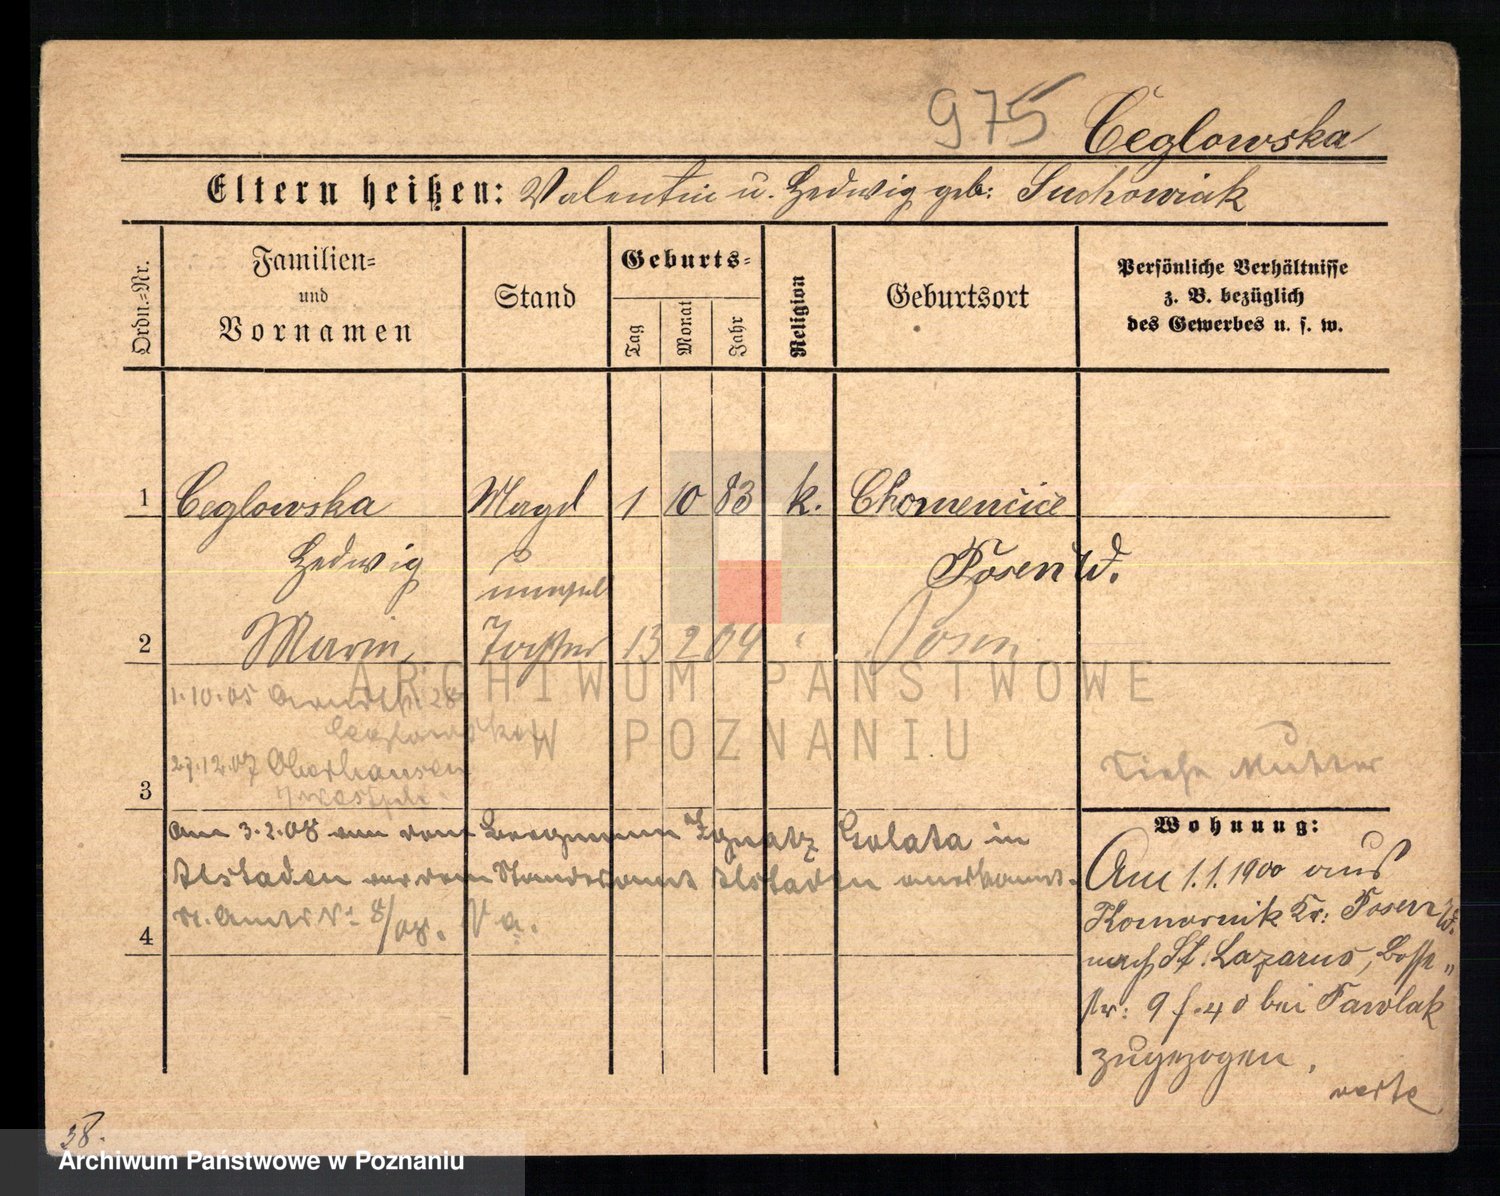 975 Ceglowska
Eltern heißen: Valentin u. Hedwig geb: Suchowiak
Ordn.-Nr.
Familien-
und
Vornamen
Stand
Geburts-
Tag
Monat
Jahr
Religion
Geburtsort
Persönliche Verhältnisse
z. B. bezüglich
des Gewerbes u. s. w.
1 Ceglowska Magd 1 10 83 k. Chomencice
Hedwig Posen W.
unehel
2 Maria, Tochter 13 2 04 " Posen
1.10.05
Ceglowska
27.12.07 Oberhausen
3 Siehe Mutter
Am 3.2.08 von dem Bergmann Ignatz Golata in
Alstaden vor dem Standesamt Alstaden anerkannt.
4 St. Amts Nr 8/08.
Wohnung:
Am 1.1.1900 aus
Komornik Kr: Posen W.
nach St. Lazarus,
str: 9 bei Pawlak
zugezogen.
verte
38.
ARCHIWUM PAŃSTWOWE
W POZNANIU
Archiwum Państwowe w Poznaniu